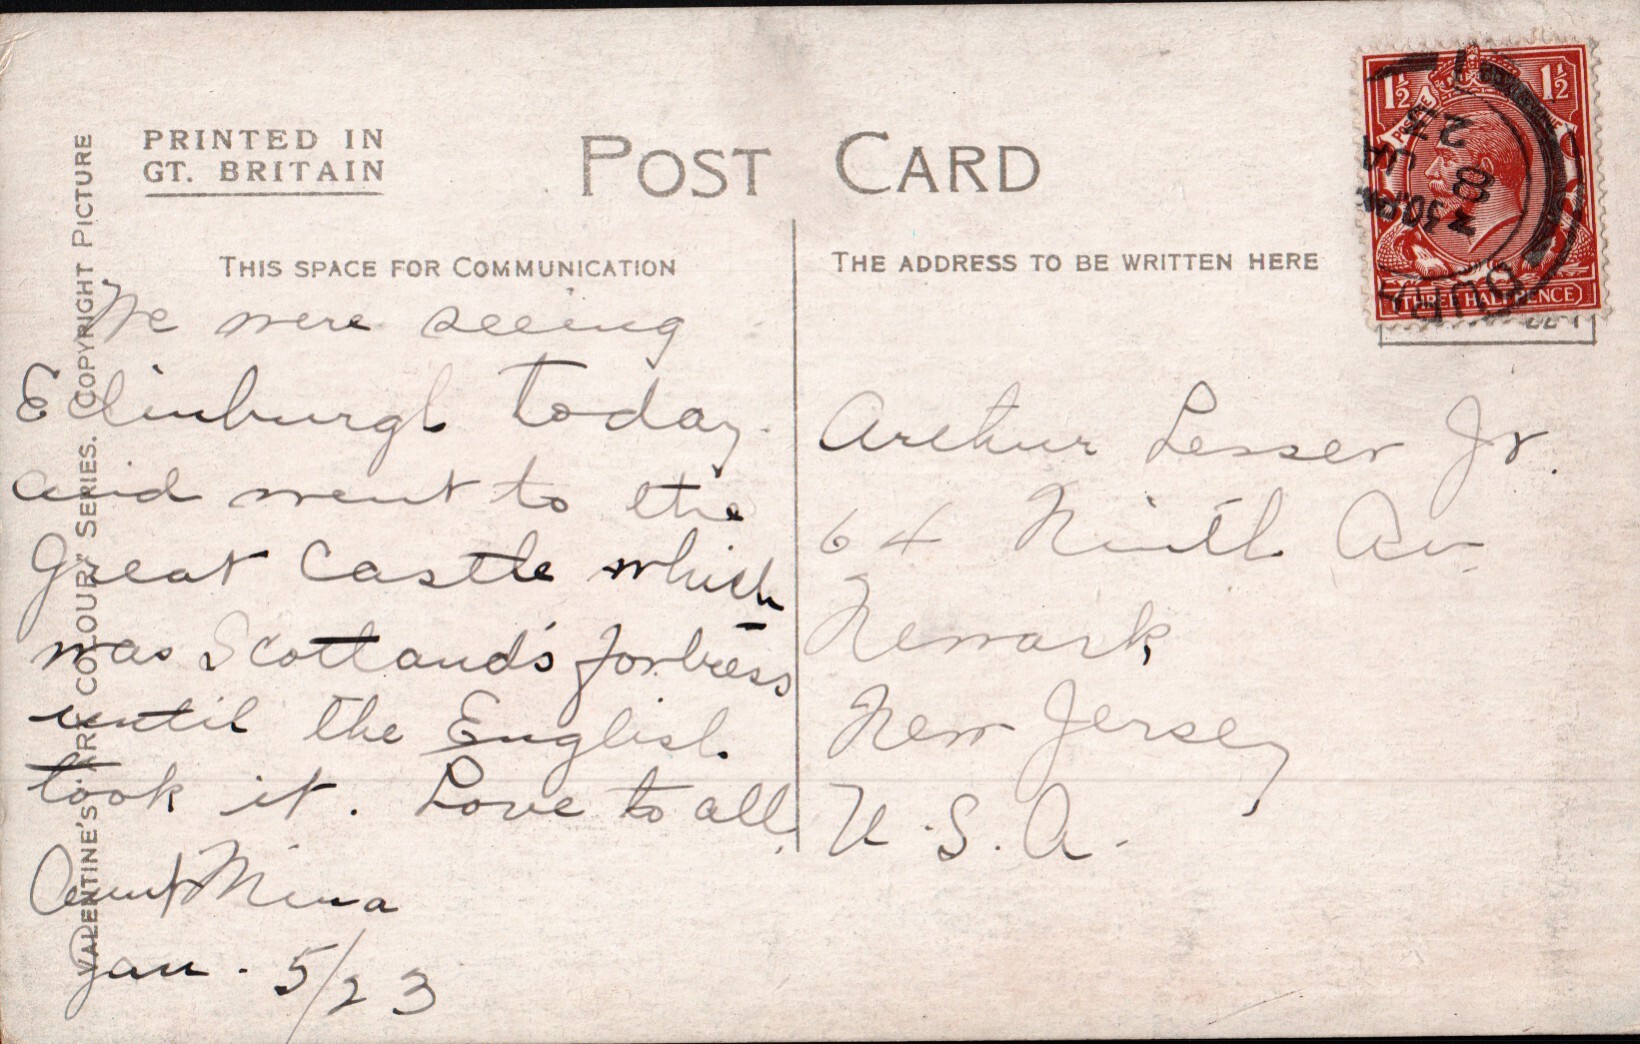 PRINTED IN
GT. BRITAIN
POST CARD
THIS SPACE FOR COMMUNICATION
THE ADDRESS TO BE WRITTEN HERE
VALENTINE'S "ART COLOUR" SERIES. COPYRIGHT PICTURE
We were seeing
Edinburgh today.
and went to the
Great Castle which
was Scotland's fortress
until the English
took it. Love to all.
Aunt Mina
Jan. 5/23
Arthur Lesser Jr.
64 Ninth Av.
Newark,
New Jersey
U.S.A.
1½ 1½
POSTAGE
THREE HALFPENCE
7 30 PM
8 JA
23